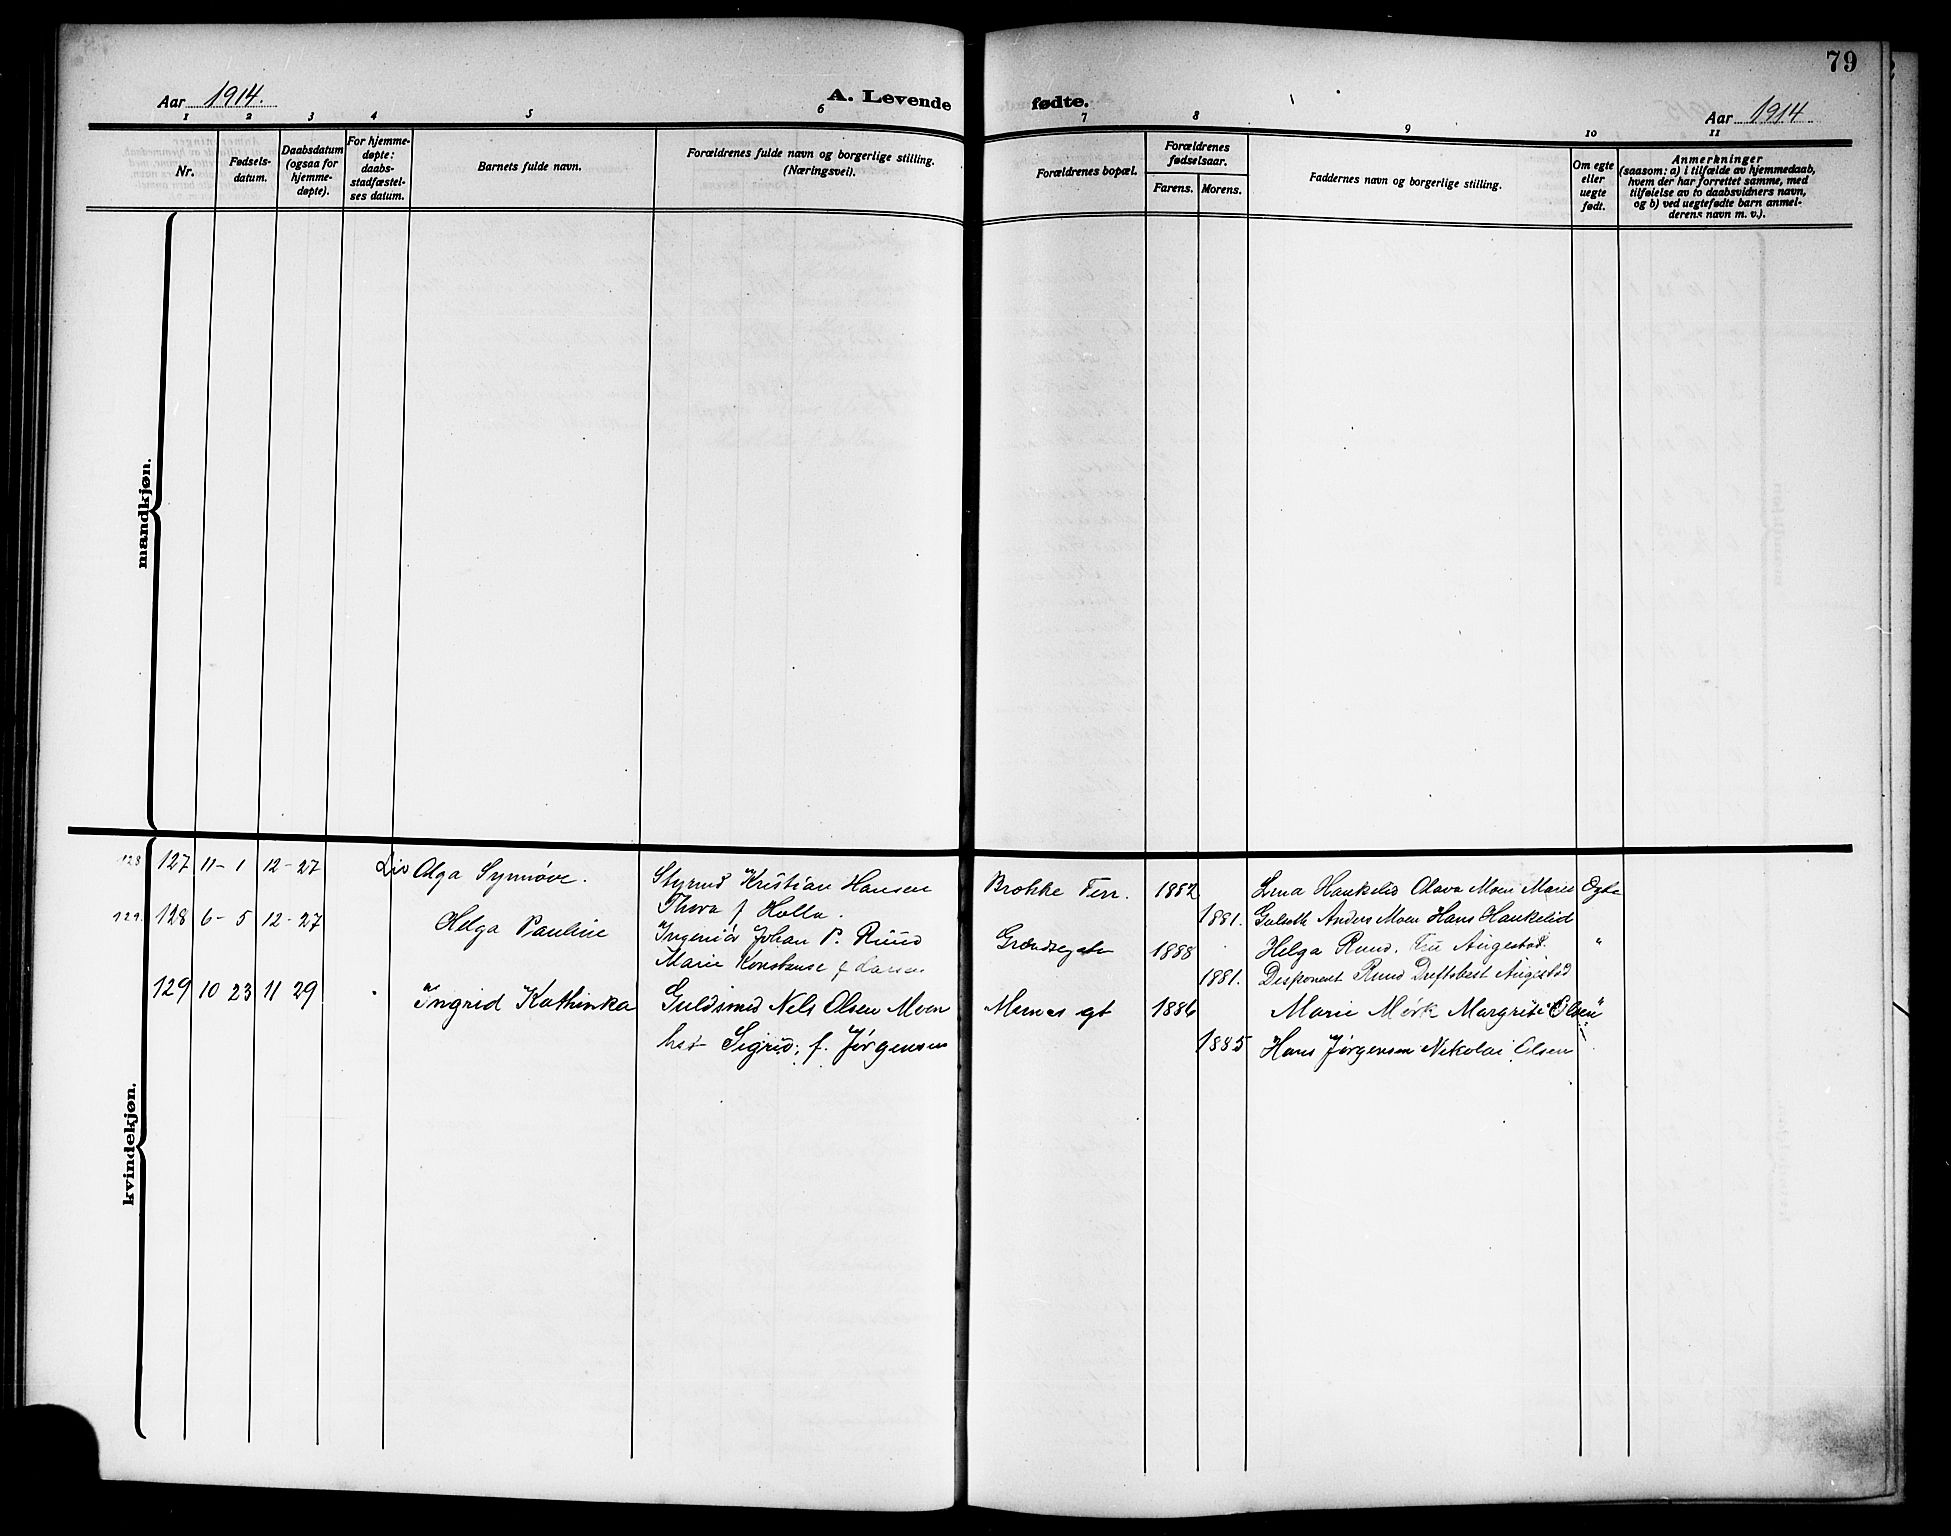 79
Aar 1914.
A. Levende
fødte.
Aar 1914
1 2 3 4 5 6 7 8 9 10 11
Nr.
Fødsels-
datum.
Daabsdatum
(ogsaa for
hjemme-
døpte).
For hjemme-
døpte:
daabs-
stadfæstel-
ses datum.
Barnets fulde navn.
Forældrenes fulde navn og borgerlige stilling.
(Næringsvei).
Forældrenes bopæl.
Forældrenes
fødselsaar.
Farens. Morens.
Faddernes navn og borgerlige stilling.
Om egte
eller
uegte
født.
Anmerkninger
(saasom: a) i tilfælde av hjemmedaab,
hvem der har forrettet samme, med
tilføielse av to daabsvidners navn,
og b) ved uegtefødte barn anmel-
derens navn m. v.).
mandkjøn.
kvindekjøn.
128 127 11-1 12-27 Liv Olga Synnøve. Styrmd Kristian Hansen Brokke Terr. 1882 Hankelid Olava Moen Marie Egte
Thora f Holla. 1881. Galseth Anders Moen Hans Hankelid
129. 128 6-5 12-27 Helga Pauline Ingeniør Johan P. Ruud 1888 Helga Ruud. Fru Augestad. "
Marie Konstanse f Larsen 1881. Disponent Ruud Driftsbest Augestad
129 10 23 11 29 Ingrid Kathinka Guldsmed Nels Olsen Moen Mernes gt 1886 Marie Mørk Margrite Olsen "
Sigrid; f. Jørgensen 1885 Hans Jørgensen Nikolai Olsen